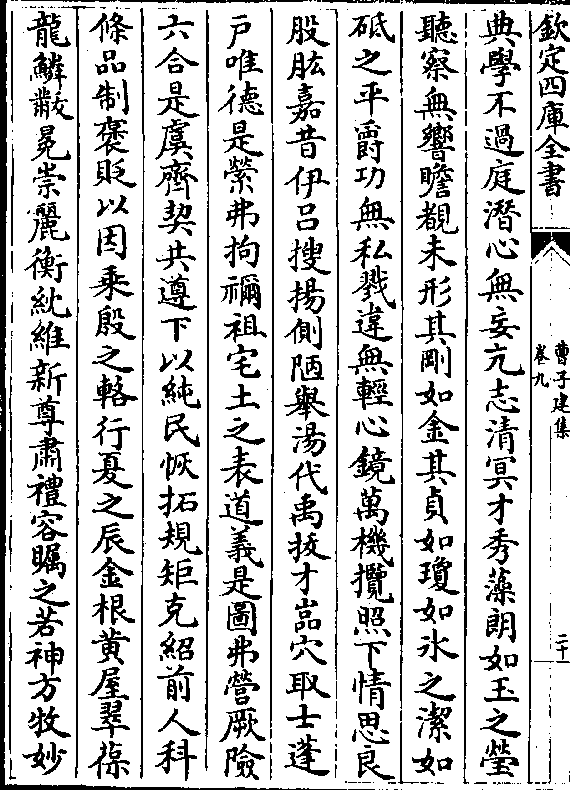 欽定四庫全書
曹子建集
卷九
二十
典學不過庭潛心無妄亢志清冥才秀藻朗如玉之瑩
聽察無響瞻覩未形其剛如金其貞如瓊如氷之潔如
砥之平爵功無私戮違無輕心鏡萬機攬照下情思良
股肱嘉昔伊呂搜揚側陋舉湯代禹拔才嵓穴取士蓬
戸唯德是縈弗拘禰祖宅土之表道義是圖弗營厥險
六合是虞齊契共遵下以純民恢拓規矩克紹前人科
條品制褒貶以因乘殷之輅行夏之辰金根黄屋翠葆
龍鱗黻冕崇麗衡紞維新尊肅禮容矚之若神方牧妙